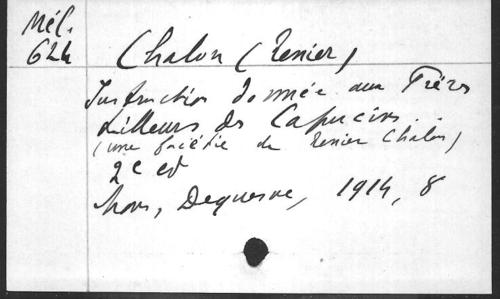 Mél.
624
Chalon (Renier)
Instruction donnée aux Frères
tailleurs des Capucins...
(une facétie de Renier Chalon)
2e ed
Mons, Dequesne, 1914, 8